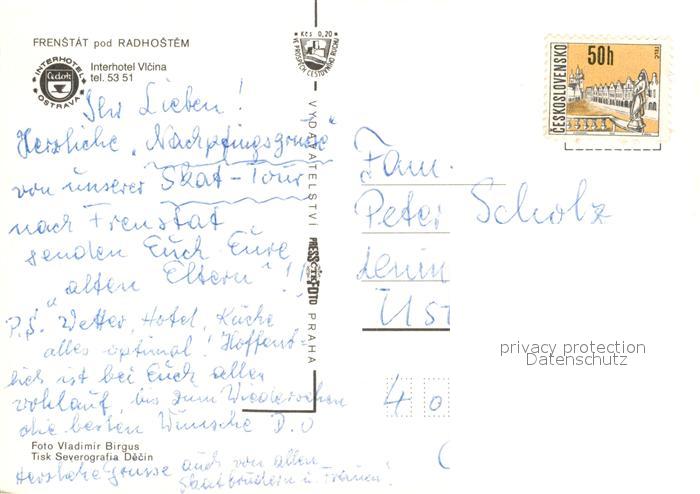 FRENŠTÁT pod RADHOŠTĚM
INTERHOTEL
Čedok
OSTRAVA
Interhotel Vlčina
tel. 53 51
Kčs 0,20
VE PROSPĚCH CESTOVNÍHO RUCHU
ČESKOSLOVENSKO
50h
TELČ
Ihr Lieben!
Herzliche "Nachpfingsgrüsse"
von unserer Skat-Tour
nach Frenstat
senden Euch Eure
"alten Eltern"!!
P.S. Wetter, Hotel, Küche
alles optimal! Hoffent-
lich ist bei Euch alles
wohlauf, bis zum Wiedersehen
die besten Wünsche D.O
Herzliche Grüsse auch von allen
Skatbrüdern u. Frauen!
VYDAVATELSTVÍ PRESSFOTO PRAHA
Fam.
Peter Scholz
Lenin
Ust
4 0
Foto Vladimír Birgus
Tisk Severografia Děčín
privacy protection
Datenschutz